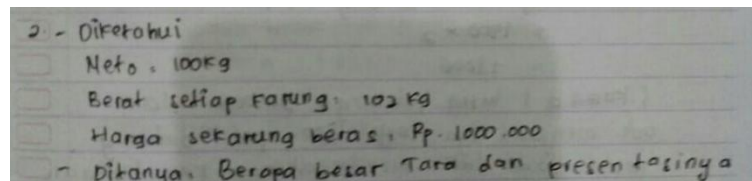 2. - Diketahui
Neto : 100 Kg
Berat setiap karung : 102 Kg
Harga sekarung beras : Rp. 1000.000
- Ditanya : Berapa besar Tara dan presentasinya